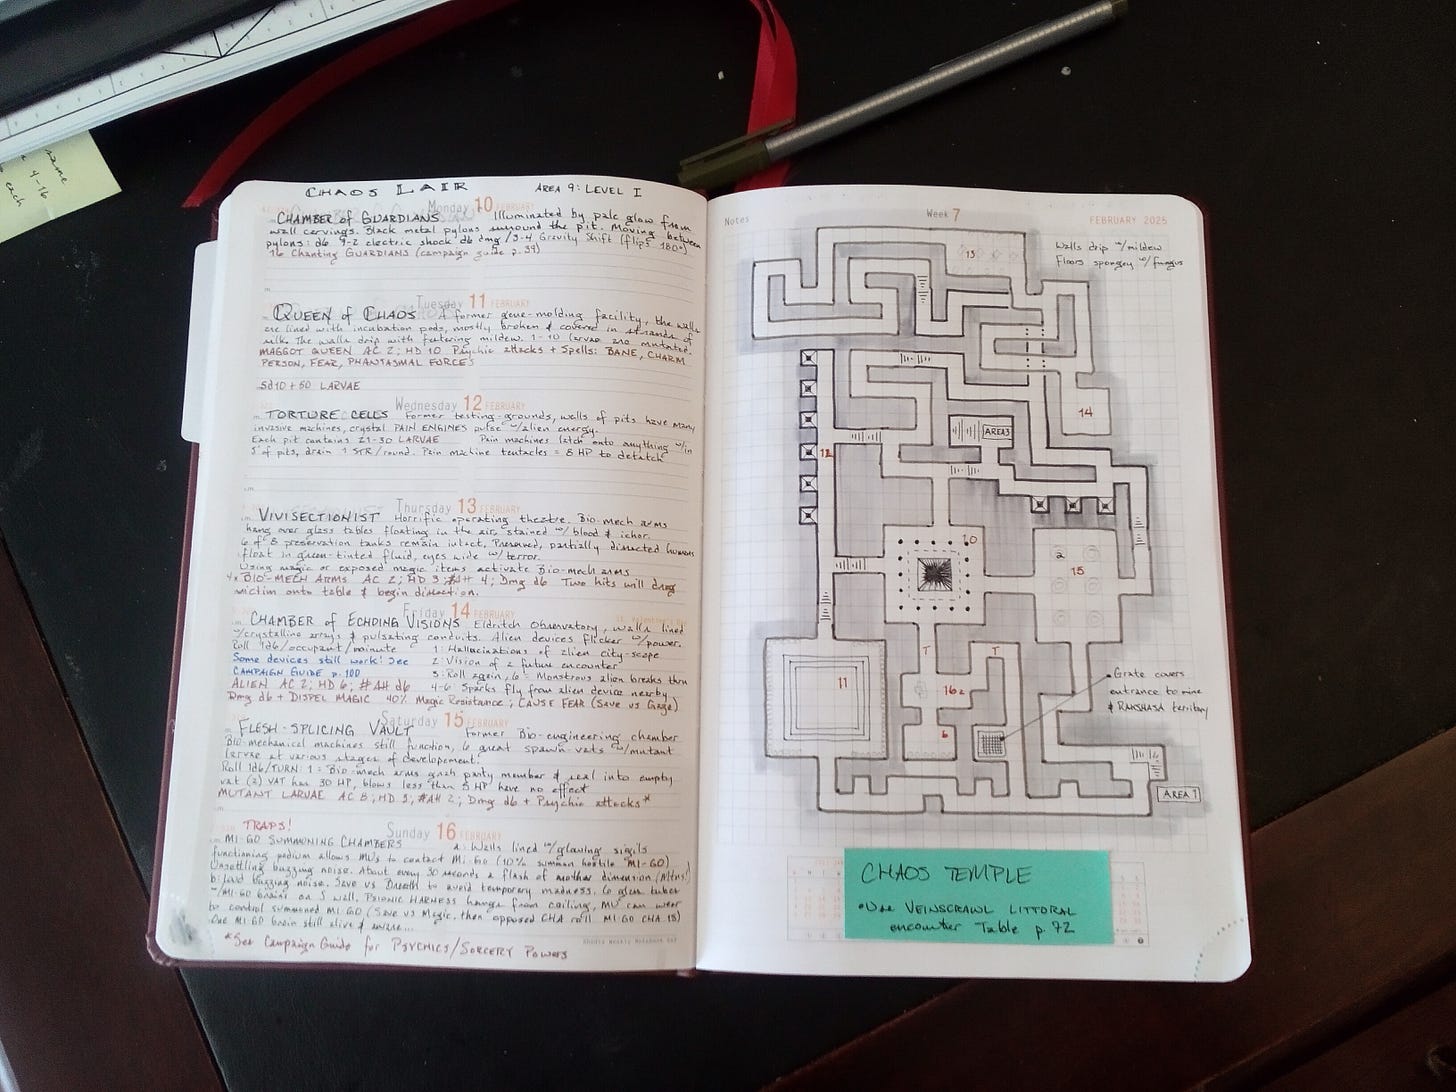 same
4-16
each
CHAOS LAIR
AREA 9: LEVEL I
Monday 10 FEBRUARY
CHAMBER of GUARDIANS Illuminated by pale glow from
wall carvings. Black metal pylons surround the pit. Moving between
pylons: d6 1-2 electric shock d6 dmg / 3-4 Gravity Shift (flips 180°)
16 Chanting GUARDIANS (campaign guide p.39)
Tuesday 11 FEBRUARY
QUEEN of CHAOS A former gene-molding facility, the walls
are lined with incubation pods, mostly broken & covered in strands of
silk. The walls drip with festering mildew. 1-10 larvae are mutated.
MAGGOT QUEEN AC 2; HD 10 Psychic attacks + Spells: BANE, CHARM
PERSON, FEAR, PHANTASMAL FORCES
5d10+50 LARVAE
Wednesday 12 FEBRUARY
TORTURE CELLS Former testing-grounds, walls of pits have many
invasive machines, crystal PAIN ENGINES pulse w/alien energy.
Each pit contains 21-30 LARVAE Pain machines latch onto anything w/in
5' of pits, drain 1 STR/round. Pain machine tentacles = 8 HP to detatch
Thursday 13 FEBRUARY
VIVISECTIONIST Horrific operating theatre. Bio-mech arms
hang over glass tables floating in the air, stained w/ blood & ichor.
6 of 8 preservation tanks remain intact, Preserved, partially disected humans
float in green-tinted fluid, eyes wide w/terror.
Using magic or exposed magic items activate Bio-mech arms
4x BIO-MECH ARMS AC 2; HD 3; #AH 4; Dmg d6 Two hits will drag
victim onto table & begin disection.
Friday 14 FEBRUARY
CHAMBER of ECHOING VISIONS Eldritch Observatory, walls lined
w/crystalline arrays & pulsating conduits. Alien devices flicker w/power.
Roll 1d6/occupant/minute 1: Hallucinations of alien city-scape
Some devices still work! See 2: Vision of a future encounter
CAMPAIGN GUIDE p. 100 3: Roll again, 6 = Monstrous alien breaks thru
ALIEN AC 2; HD 6; #AH d6 4-6: Sparks fly from alien device nearby
Dmg d6 + DISPEL MAGIC 40% Magic Resistance; CAUSE FEAR (Save vs Gaze)
Saturday 15 FEBRUARY
FLESH-SPLICING VAULT Former Bio-engineering chamber
Bio-mechanical machines still function, 6 great spawn-vats w/mutant
larvae at various stages of developement.
Roll 1d6/TURN: 1 = Bio-mech arms grab party member & seal into empty
vat (2) VAT has 30 HP, blows less than 5 HP have no effect
MUTANT LARVAE AC 8; HD 3; #AH 2; Dmg d6 + Psychic attacks*
TRAPS!
Sunday 16 FEBRUARY
MI-GO SUMMONING CHAMBERS a: Walls lined w/glowing sigils
functioning podium allows MUs to contact MI-GO (10% summon hostile MI-GO)
Unsettling buzzing noise. About every 30 seconds a flash of another dimension
b: Loud buzzing noise. Save vs Breath to avoid temporary madness. 6 glass tubes
w/MI-GO brains on S wall. PSIONIC HARNESS hangs from ceiling, MU can wear
to control summoned MI-GO (Save vs Magic, then opposed CHA roll. MI-GO CHA 15)
One MI-GO brain still alive & aware...
*See Campaign Guide for PSYCHICS/SORCERY POWERS
Rhodia Weekly Notebook
Notes
Week 7
FEBRUARY 2025
Walls drip w/mildew
Floors spongey w/fungus
13
14
AREA 3
12
10
2
15
T
T
11
16a
b
Grate covers
entrance to mine
& RAKSHASA territory
AREA 1
CHAOS TEMPLE
•Use VEINSCRAWL LITTORAL
encounter Table p. 72